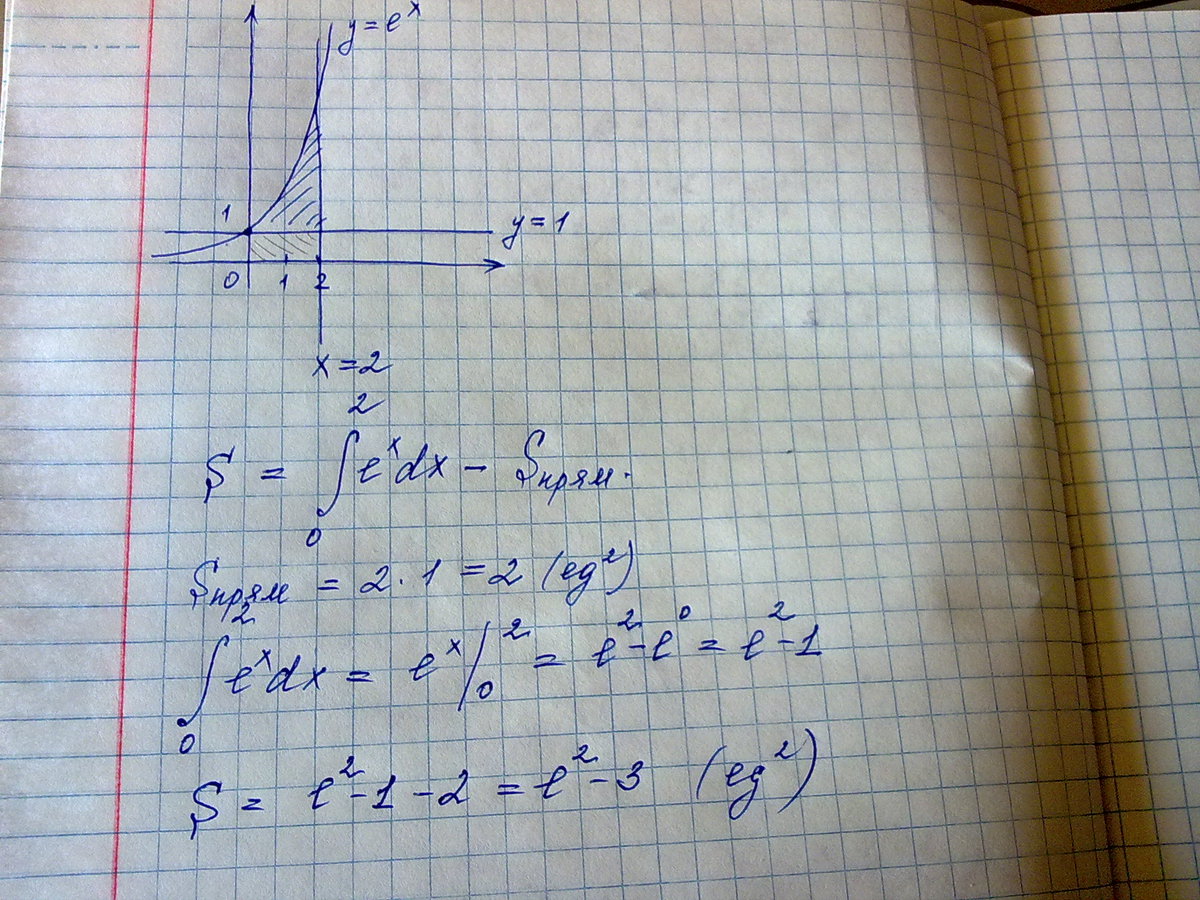 y = eˣ
1
y = 1
0 1 2
x = 2
S = ∫₀² eˣdx − Sпрям.
Sпрям = 2 · 1 = 2 (ед²)
∫₀² eˣdx = eˣ|₀² = e² − e⁰ = e² − 1
S = e² − 1 − 2 = e² − 3 (ед²)